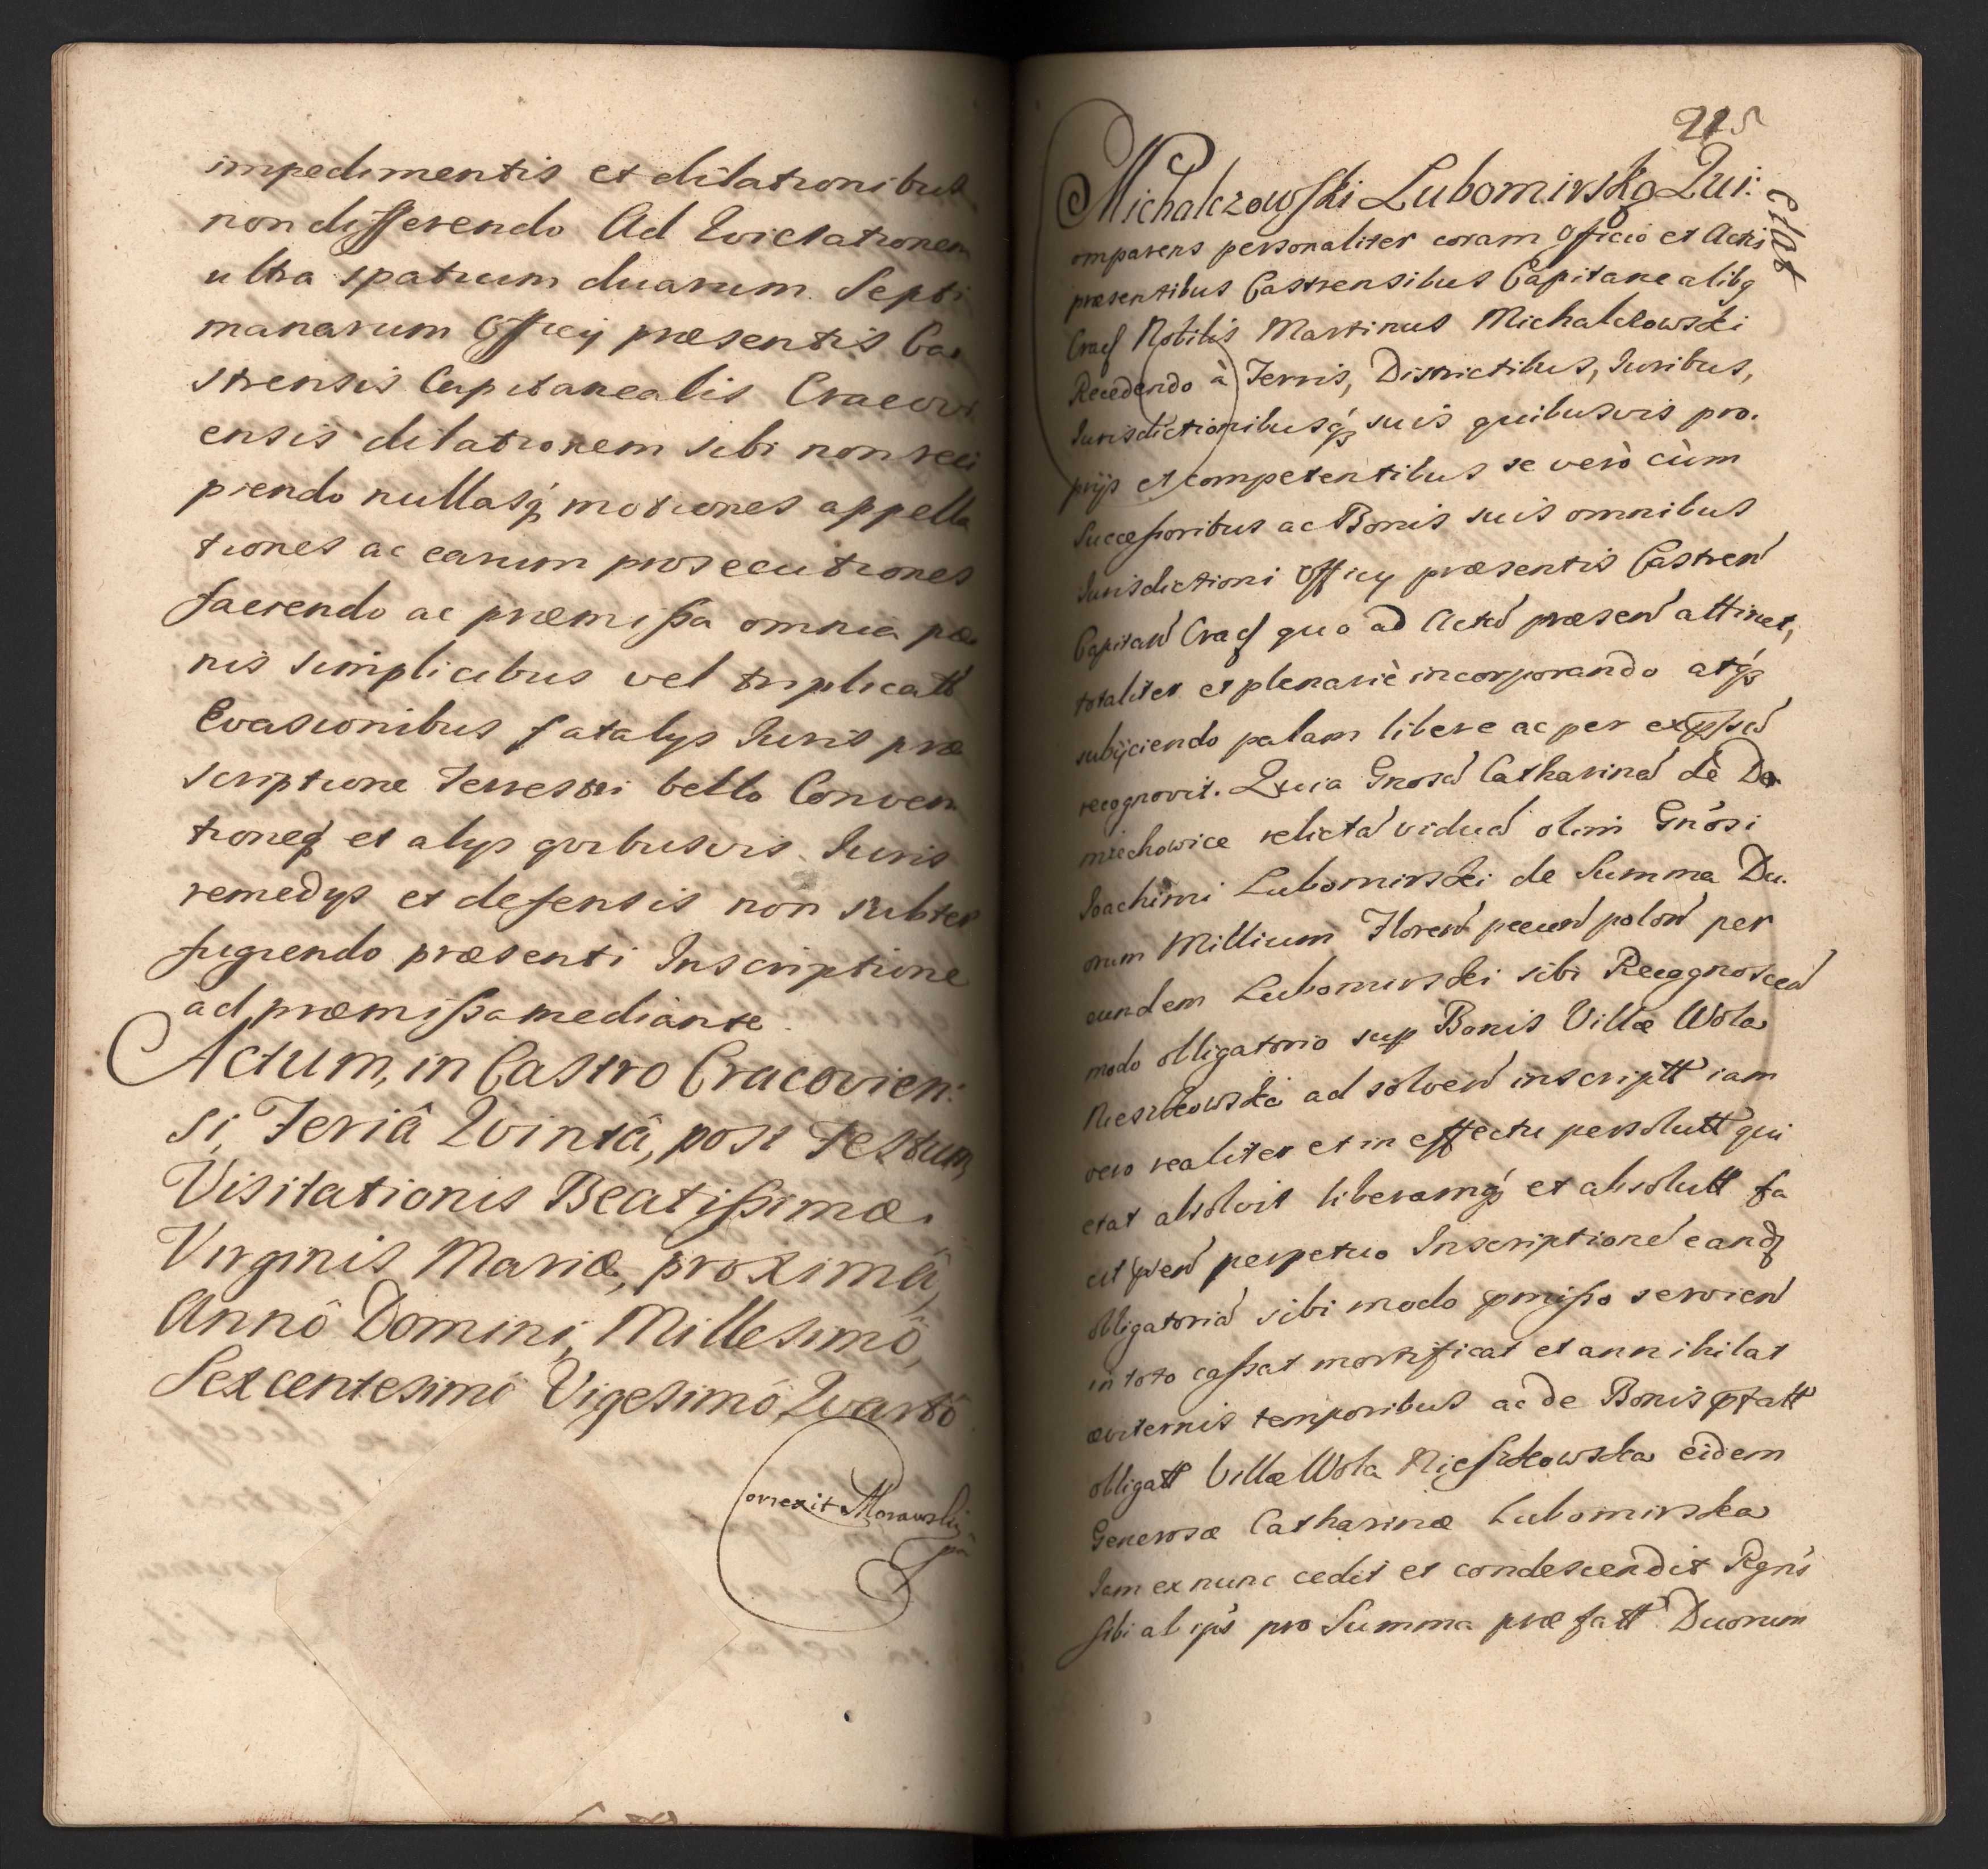 impedimentis et dilationibus
non differendo Ad Evictationem
ultra spatium duarum Septi
manarum Officij præsentis Ca
strensis Capitanealis Cracovi
ensis dilationem sibi non reci
piendo nullasq́ motiones appella
tiones ac earum prosecutiones
faciendo ac præmissa omnia pæ
nis simplicibus vel triplicatt
Evasionibus fatalijs Juris præ
scriptione terrestri bello Conven
tioneq́ et alijs quibusvis Juris
remedijs et defensis non subter
fugiendo præsenti Inscriptione
ad præmissa mediante.
Actum, in Castro Cracovien:
si, Feriâ Quintâ, post Festum
Visitationis Beatissimæ
Virginis Mariæ, proximâ,
Annô Domini, Millesimô,
Sexcentesimô Vigesimô, Quartô
Correxit Morawski
mp
215
Michalczowski Lubomirską Qui:
etat
omparens personaliter coram Officio et Actis
præsentibus Castrensibus Capitanealibq
Cracſ Nobilis Martinus Michalczowski
Recedendo à Terris, Districtibus, Juribus,
Jurisdictionibusq́ suis quibusvis pro.
prijs et competentibus se verò cùm
Successoribus ac Bonis suis omnibus
Jurisdictioni Officij præsentis Castren
Capitan Cracſ quo ad Actu præsen attinet,
totaliter et plenariè incorporando atq́
subijciendo palam libere ac per expssu
recognovit. Quia Gnosa Catharina de Do
miechowice relicta vidua olim Gnosi
Joachimi Lubomirski de Summa Du.
orum Millium Floren pecun polon per
eundem Lubomirski sibi Recognoscen
modo obligatorio sup Bonis Villæ Wola
Nieszkowska ad solven inscriptt iam
vero realiter et in effectu persolutt qui
etat absolvit liberamq́ et absolutt fa
cit pren perpetuo Inscriptione eandq
obligatoria sibi modo pmisso servien
in toto cassat mortificat et annihilat
æviternis temporibus ac de Bonis pfatt
obligatt Villæ Wola Nieszkowska eidem
Generosæ Catharinæ Lubomirska
Jam ex nunc cedit et condescendit Rgns
sibi ab ips pro Summa præfatt Duorum